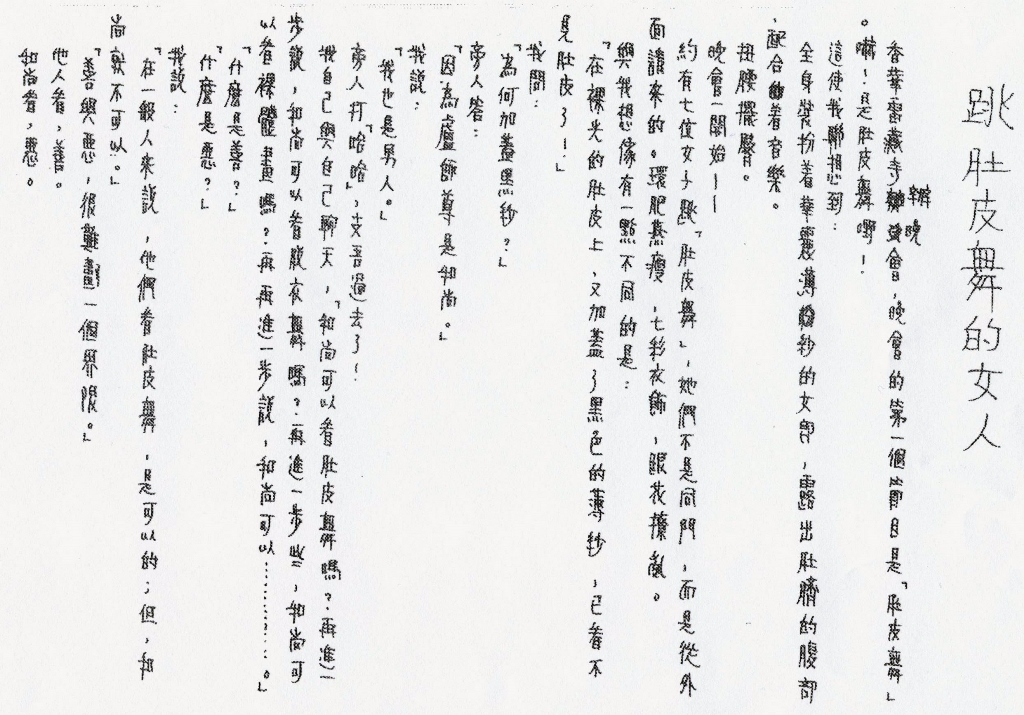 跳肚皮舞的女人
香華密藏寺辦晚會，晚會的第一個節目是「肚皮舞」
。嘛！是肚皮舞嘢！
這使我聯想到：
全身裝扮著華麗薄紗的女郎，露出肚臍的腹部
，配合著音樂。
扭腰擺臀。
晚會一開始——
約有七位女子跳「肚皮舞」，她們不是同門，而是從外
面請來的。環肥燕瘦，七彩衣飾，眼花撩亂。
與我想像有一點不同的是：
「在裸光的肚皮上，又加蓋了黑色的薄紗，已看不
見肚皮了！」
我問：
「為何加蓋黑紗？」
旁人答：
「因為盧師尊是和尚。」
我說：
「我也是男人。」
旁人打「哈哈」，支吾過去了！
我自己與自己聊天，「和尚可以看肚皮舞嗎？再進一
步說，和尚可以看脫衣舞嗎？再進一步些，和尚可
以看裸體畫嗎？再再進一步說，和尚可以………？…。」
「什麼是善？」
「什麼是惡？」
我說：
「在一般人來說，他們看肚皮舞，是可以的；但，和
尚就不可以。」
「善與惡，很難畫一個界限。」
他人看，善。
和尚看，惡。